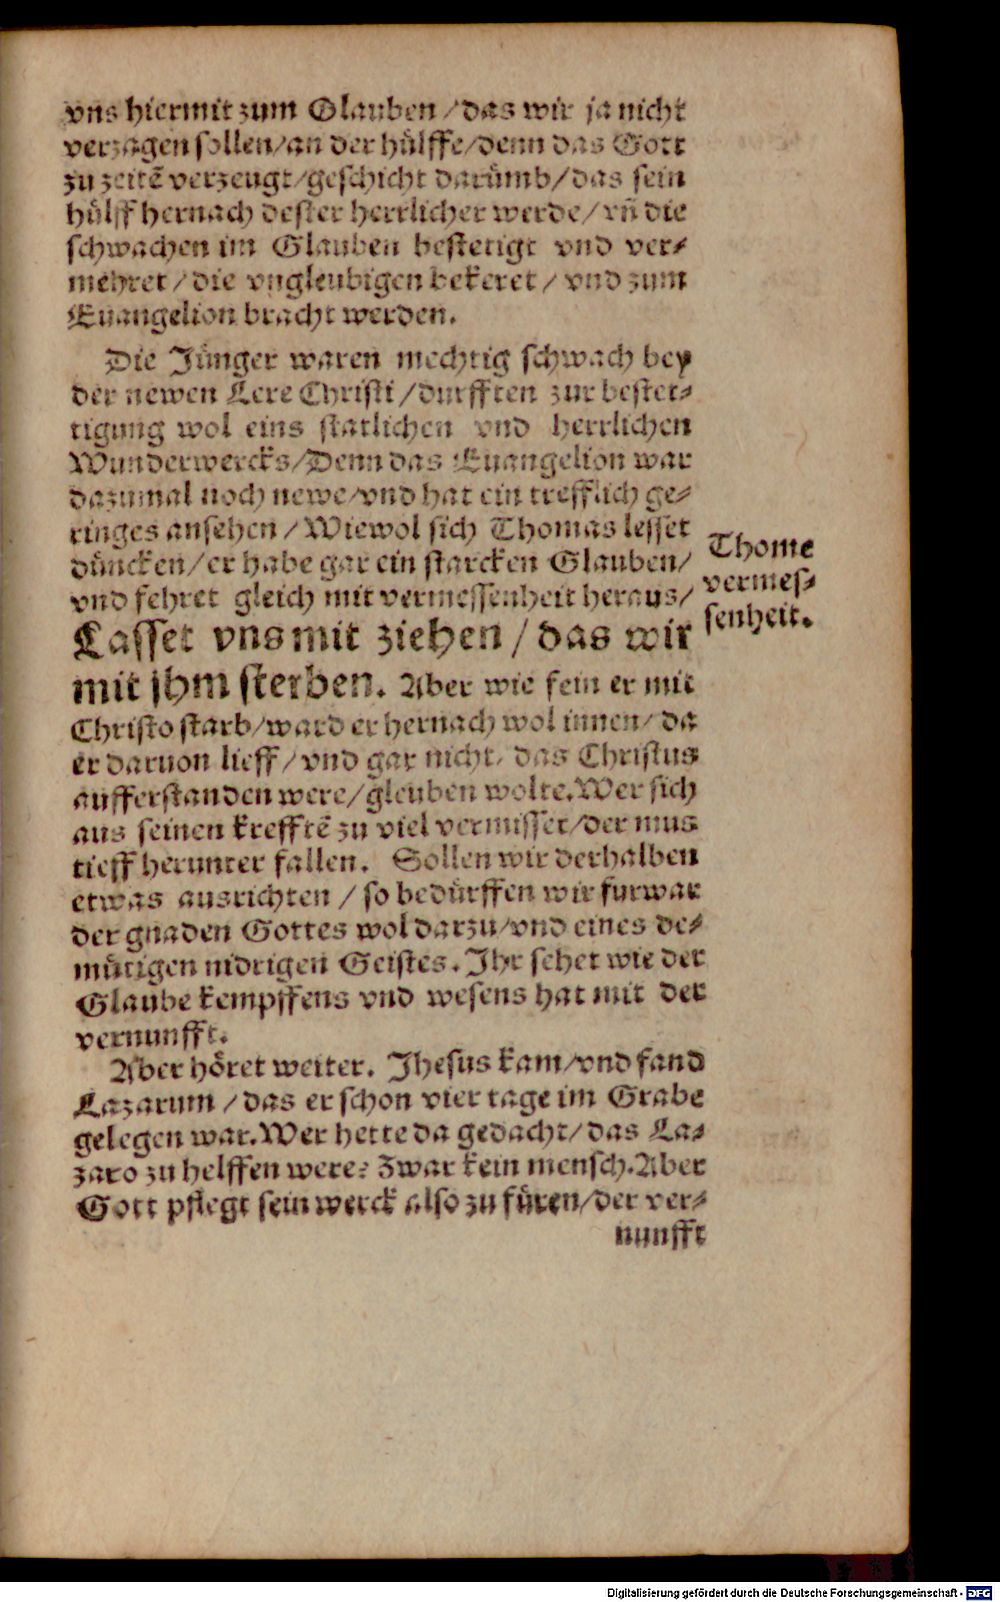 vns hiermit zum Glauben / das wir ja nicht
verzagen sollen/an der hülffe/denn das Gott
zu zeitē verzeugt/geschicht darümb/das sein
hülff hernach dester herrlicher werde/vñ die
schwachen im Glauben bestetigt vnd ver-
mehret / die vngleubigen bekeret / vnd zum
Euangelion bracht werden.
Die Jünger waren mechtig schwach bey
der newen Lere Christi/durfften zur bestet-
tigung wol eins statlichen vnd herrlichen
Wunderwercks/Denn das Euangelion war
dazumal noch newe/vnd hat ein trefflich ge-
ringes ansehen / Wiewol sich Thomas lesset
düncken/er habe gar ein starcken Glauben/
vnd fehret gleich mit vermessenheit heraus/
Lasset vns mit ziehen / das wir
mit jhm sterben. Aber wie fein er mit
Christo starb/ward er hernach wol innen/da
er daruon lieff/vnd gar nicht, das Christus
aufferstanden were/gleuben wolte.Wer sich
aus seinen krefftē zu viel vermisset/der mus
tieff herunter fallen. Sollen wir derhalben
etwas ausrichten / so bedürffen wir furwar
der gnaden Gottes wol darzu/vnd eines de-
mütigen nidrigen Geistes. Jhr sehet wie der
Glaube kempffens vnd wesens hat mit der
vernunfft.
Aber höret weiter. Jhesus kam/vnd fand
Lazarum / das er schon vier tage im Grabe
gelegen war.Wer hette da gedacht/das La-
zaro zu helffen were? Zwar kein mensch.Aber
Gott pflegt sein werck also zu füren/der ver-
nunfft
Thome
vermes-
senheit.
Digitalisierung gefördert durch die Deutsche Forschungsgemeinschaft - DFG